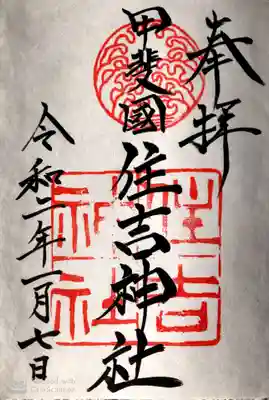 奉拝
甲斐國住吉神社
住吉神社
令和二年一月七日
Scanned with
CamScanner